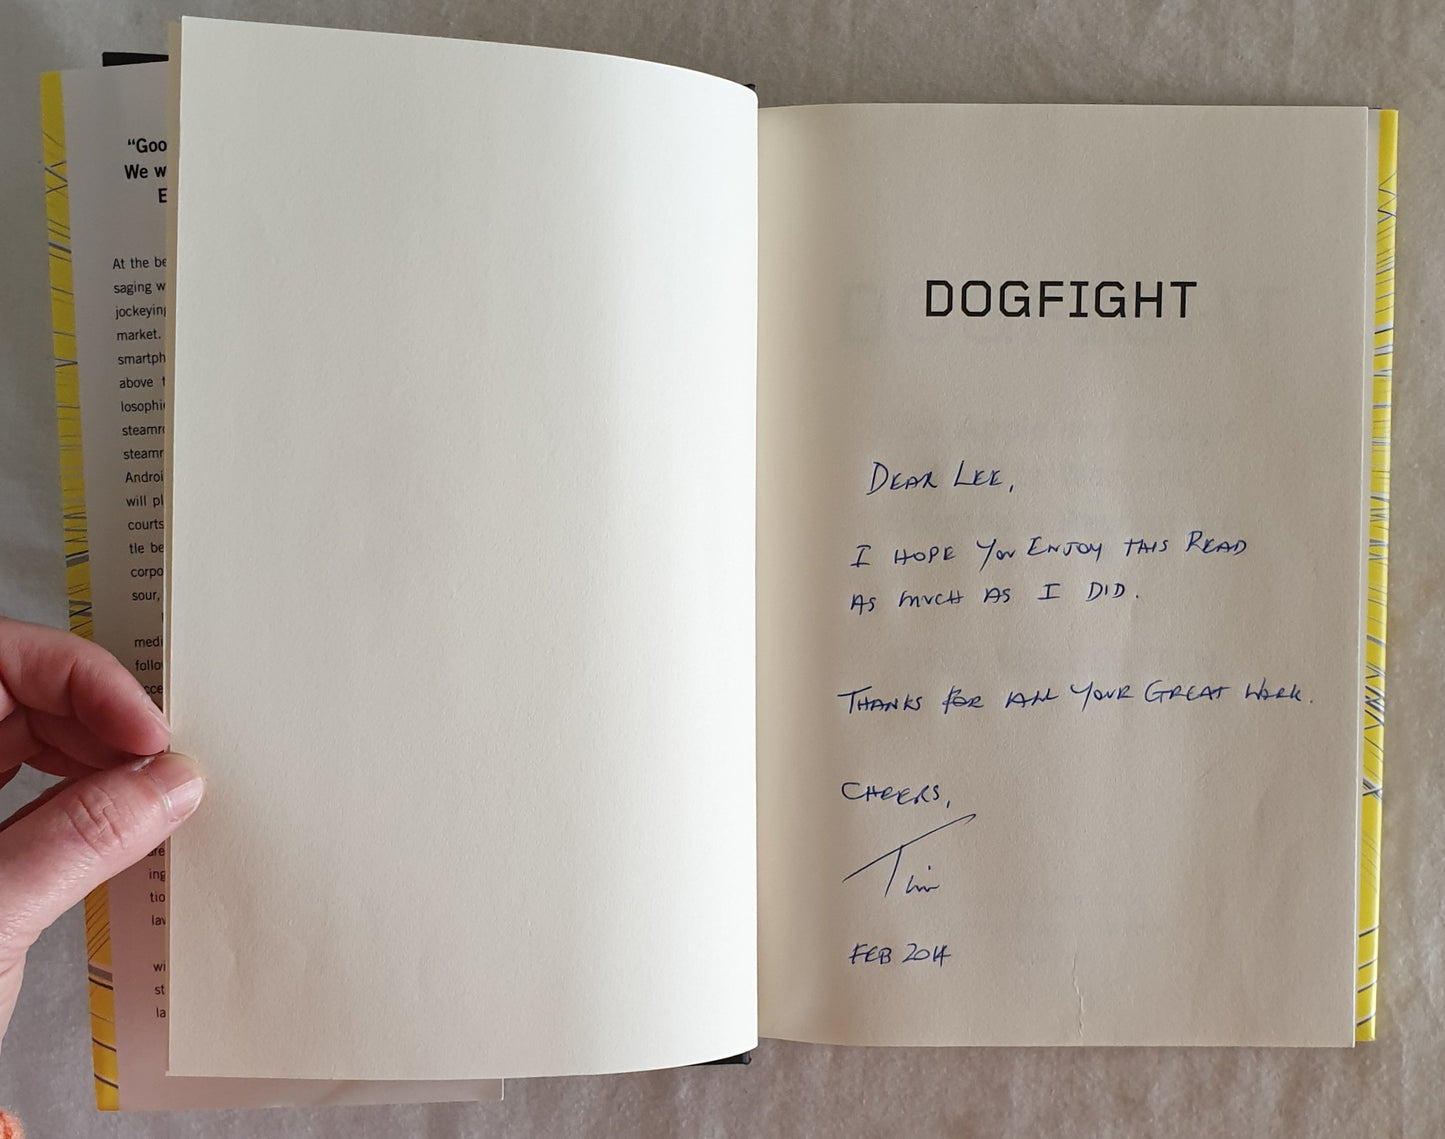 “Goo
We w
E
At the be
saging w
jockeying
market.
smartph
above t
losophie
steamro
steamr
Androi
will pl
courts
tle be
corpo
sour,
medi
follo
cce
are
ing
tio
law
wi
st
la
DOGFIGHT
DEAR LEE,
I HOPE YOU ENJOY THIS READ
AS MUCH AS I DID.
THANKS FOR ALL YOUR GREAT WORK.
CHEERS,
Tim
FEB 2014